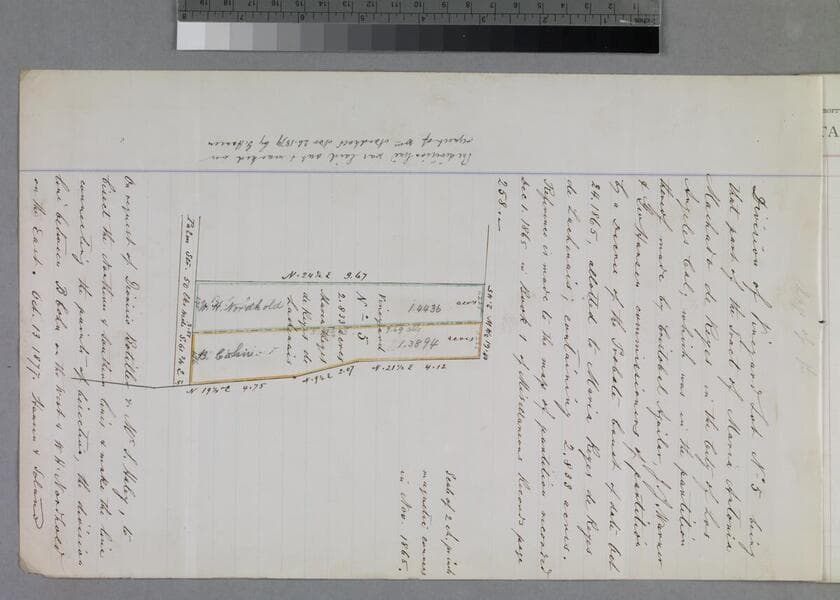 Division of Vineyard Lot No 5 being
that part of the tract of Maria Antonia
Machado de Reyes in the City of Los
Angeles Cal, which was in the partition
thereof made by Cristobal Aguilar, J. J. Warner
& Geo Hansen commissioners of partition
by a Decree of the Probate Court of date Oct
24, 1865, allotted to Maria Reyes de Reyes
de Lachenais; containing 2.833 acres.
Reference is made to the map of partition recorded
Dec 1. 1865 in Book 1 of Miscellaneous Records page
258.
Scale of 2 in. p. inch
magnetic courses
in Nov. 1865.
N. 24½ E 9.67
W. H. Nordhold
1.4436
acres
Vineyard
No 5
2.833 acres
Maria Reyes
de Reyes de
Lachenais
B. Cohn
1.3894
acres
N 19½ E 4.75
2.07
N. 21½ E 4.12
Palm Str. 50 lks wide
On request of Dionicio Botiller & Mr. S. Haley, to
bisect the Northern & Southern line & make the line
connecting the points of bisection, the division
line between B Cohn on the West & W. H. Nordhold
on the East. Oct. 13 1877. Hansen & Solano
The division line was laid out & marked on
request of Wm Nordholt Nov 26. 1879 by G. Hansen